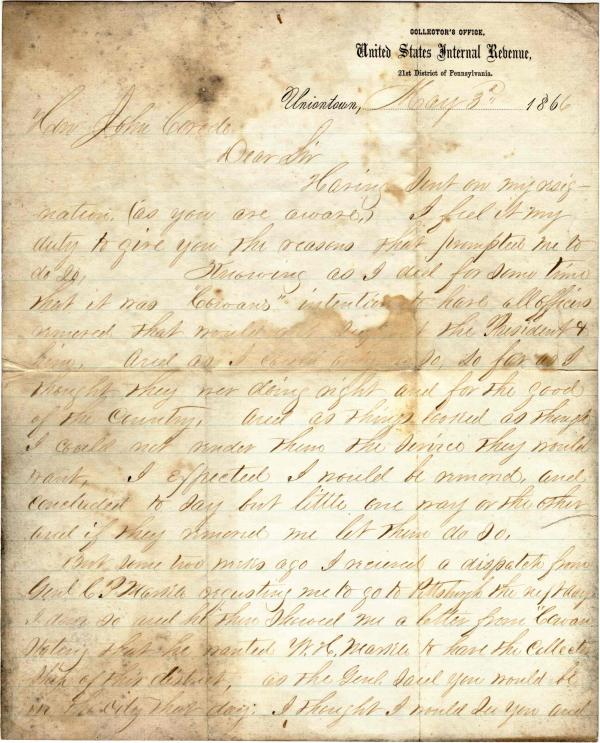 COLLECTOR'S OFFICE,
United States Internal Revenue,
21st District of Pennsylvania.
Uniontown, May 3d 1866
Hon John Covode
Dear Sir
Having sent on my resig-
nation, (as you are aware,) I feel it my
duty to give you the reasons that prompted me to
do so, Knowing as I did for some time
that it was "Cowans" intention to have all officers
removed that would not the President &
him, and as I could only do so, so far as I
thought they wer doing right and for the good
of the Country, and as things looked as though
I could not render them the service they would
want, I expected I would be removd, and
concluded to say but little one way or the other
and if they removed me let them do so.
But some two weeks ago I received a dispatch from
Genl C. P. Markle requesting me to go to Pittsburgh the next day
I done so and he then showed me a letter from "Cowan
stating that he wanted W. H. Markle to have the Collector
ship of this district, as the Genl said you would be
in the City that day; I thought I would see you and